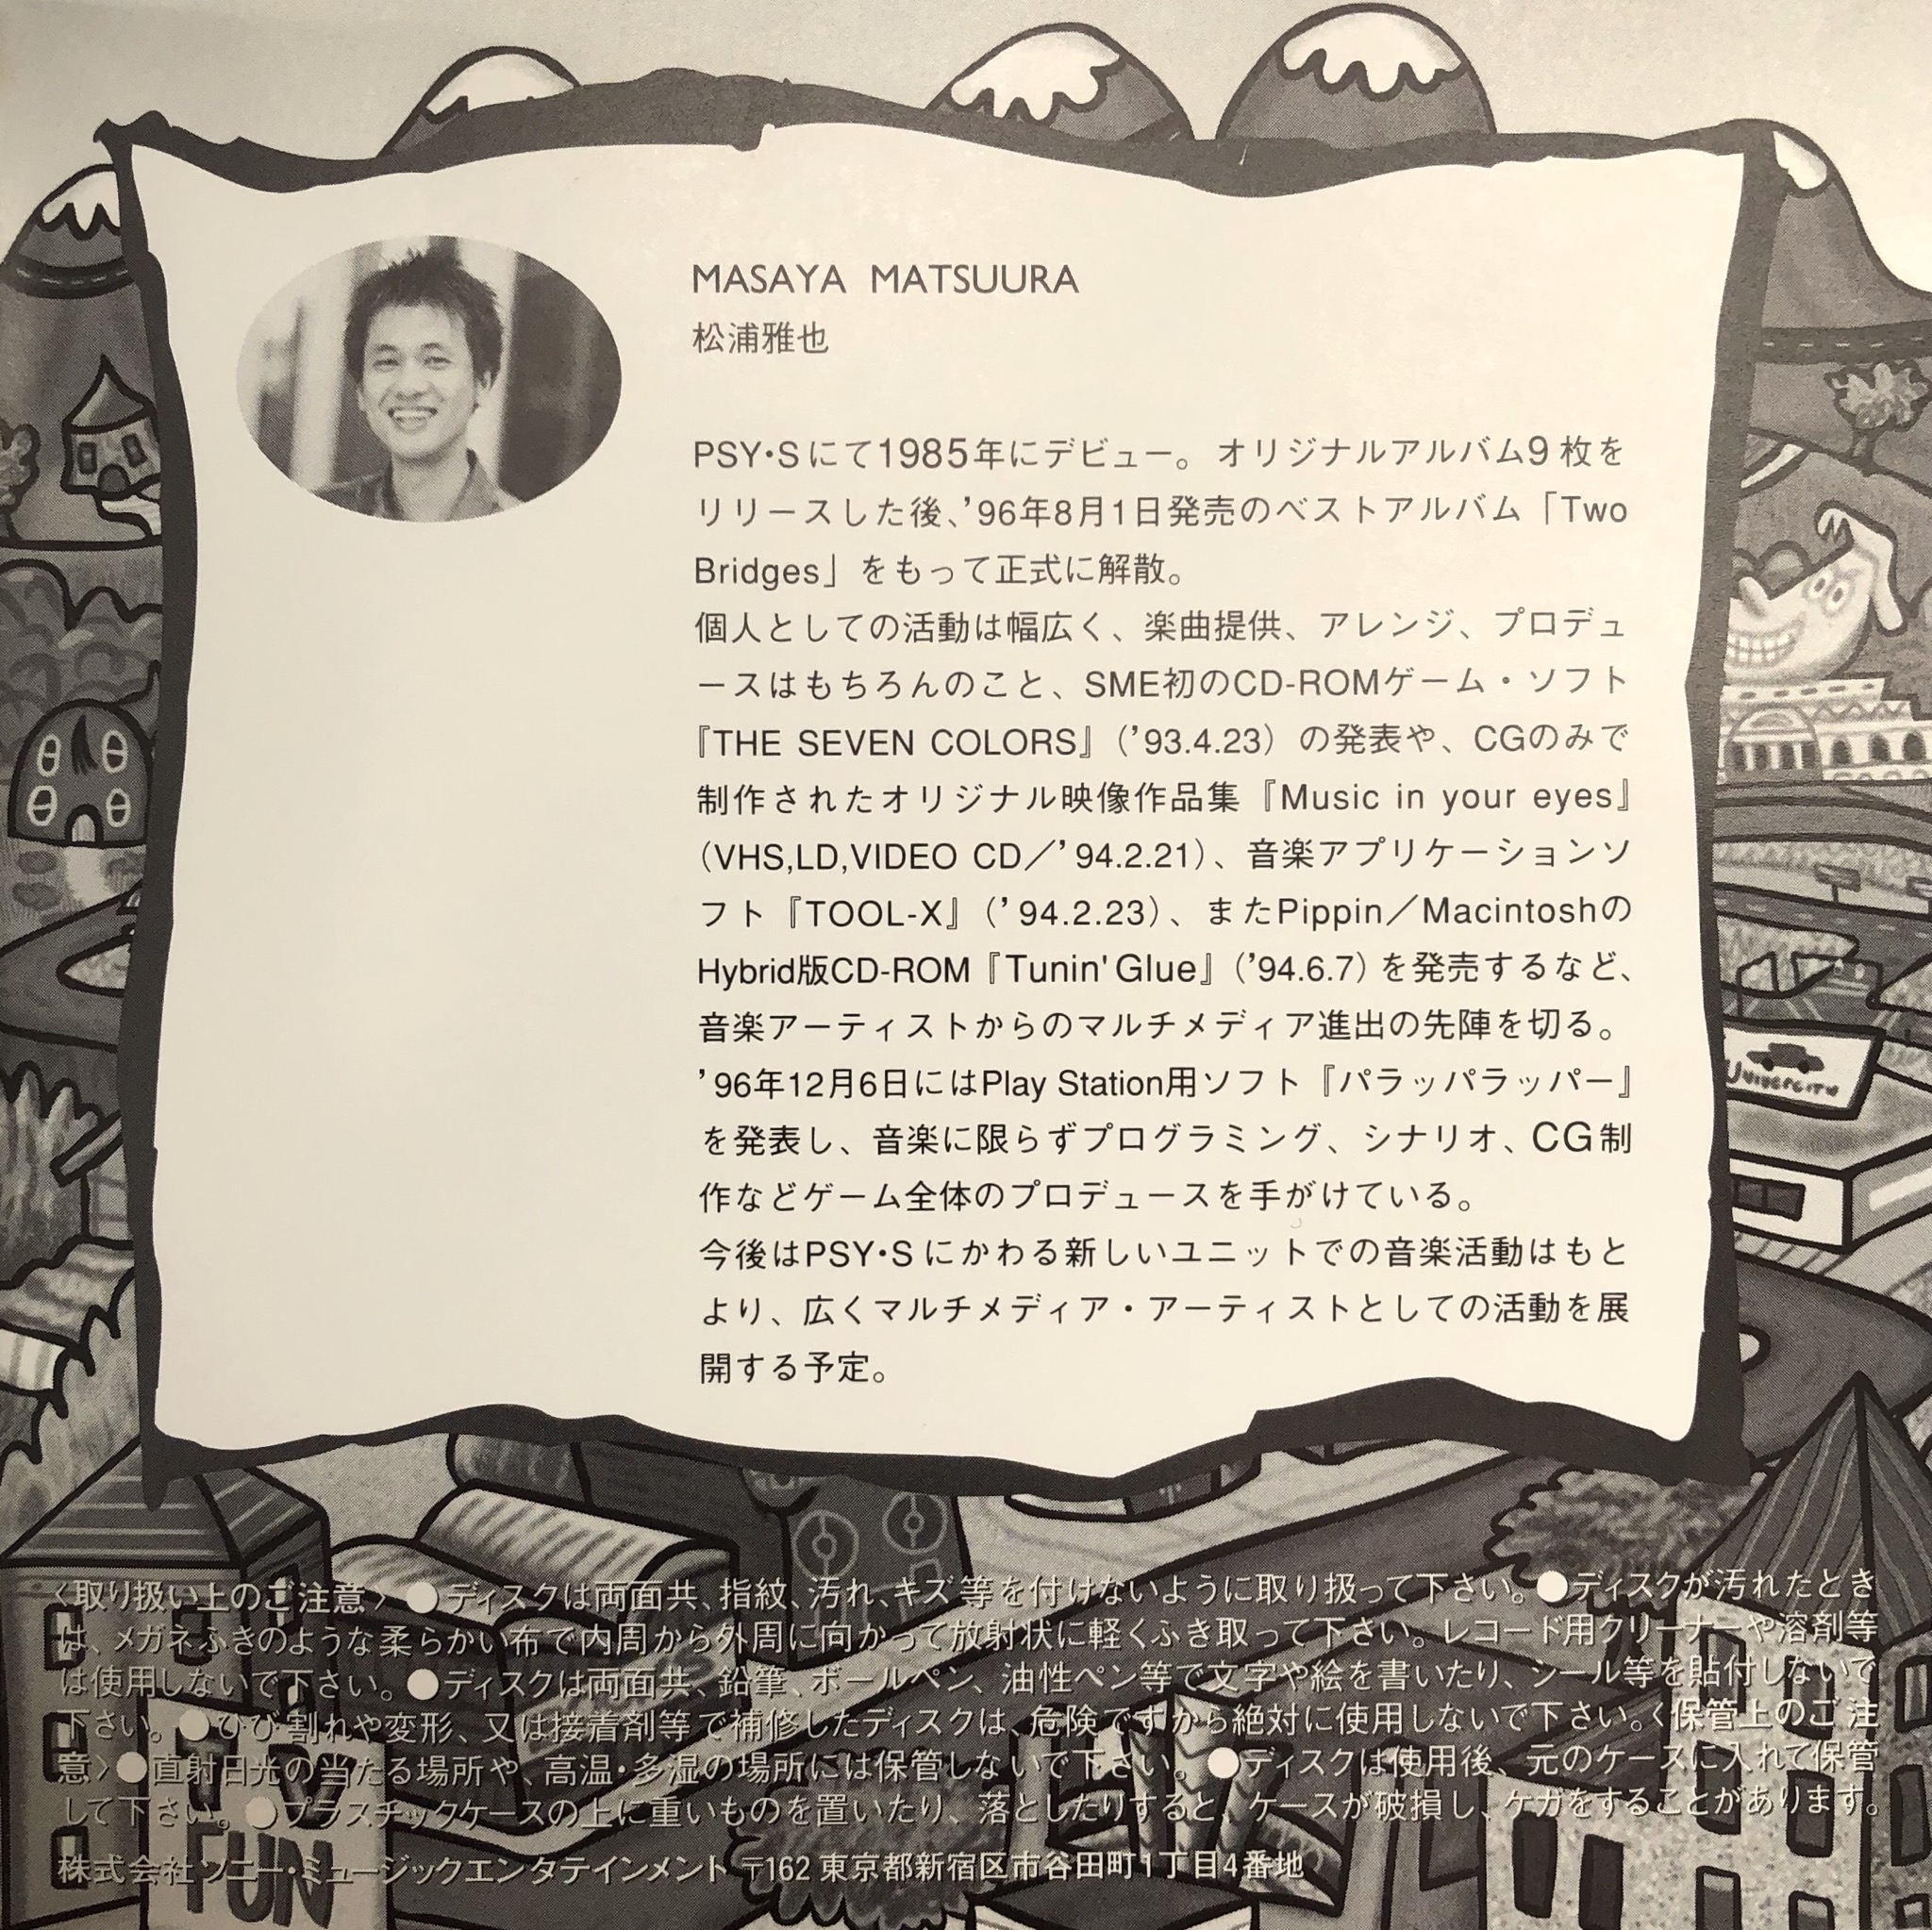 MASAYA MATSUURA
松浦雅也
PSY・Sにて1985年にデビュー。オリジナルアルバム9枚を
リリースした後、’96年8月1日発売のベストアルバム「Two
Bridges」をもって正式に解散。
個人としての活動は幅広く、楽曲提供、アレンジ、プロデュ
ースはもちろんのこと、SME初のCD-ROMゲーム・ソフト
『THE SEVEN COLORS』（’93.4.23）の発表や、CGのみで
制作されたオリジナル映像作品集『Music in your eyes』
（VHS,LD,VIDEO CD／’94.2.21）、音楽アプリケーションソ
フト『TOOL-X』（’94.2.23）、またPippin／Macintoshの
Hybrid版CD-ROM『Tunin' Glue』（’94.6.7）を発売するなど、
音楽アーティストからのマルチメディア進出の先陣を切る。
’96年12月6日にはPlay Station用ソフト『パラッパラッパー』
を発表し、音楽に限らずプログラミング、シナリオ、CG制
作などゲーム全体のプロデュースを手がけている。
今後はPSY・Sにかわる新しいユニットでの音楽活動はもと
より、広くマルチメディア・アーティストとしての活動を展
開する予定。
UNIVERCITY
〈取り扱い上のご注意〉●ディスクは両面共、指紋、汚れ、キズ等を付けないように取り扱って下さい。●ディスクが汚れたとき
は、メガネふきのような柔らかい布で内周から外周に向かって放射状に軽くふき取って下さい。レコード用クリーナーや溶剤等
は使用しないで下さい。●ディスクは両面共、鉛筆、ボールペン、油性ペン等で文字や絵を書いたり、シール等を貼付しないで
下さい。●ひび割れや変形、又は接着剤等で補修したディスクは、危険ですから絶対に使用しないで下さい。〈保管上のご注
意〉●直射日光の当たる場所や、高温・多湿の場所には保管しないで下さい。●ディスクは使用後、元のケースに入れて保管
して下さい。●プラスチックケースの上に重いものを置いたり、落としたりすると、ケースが破損し、ケガをすることがあります。
株式会社ソニー・ミュージックエンタテインメント 〒162 東京都新宿区市谷田町1丁目4番地
FUN